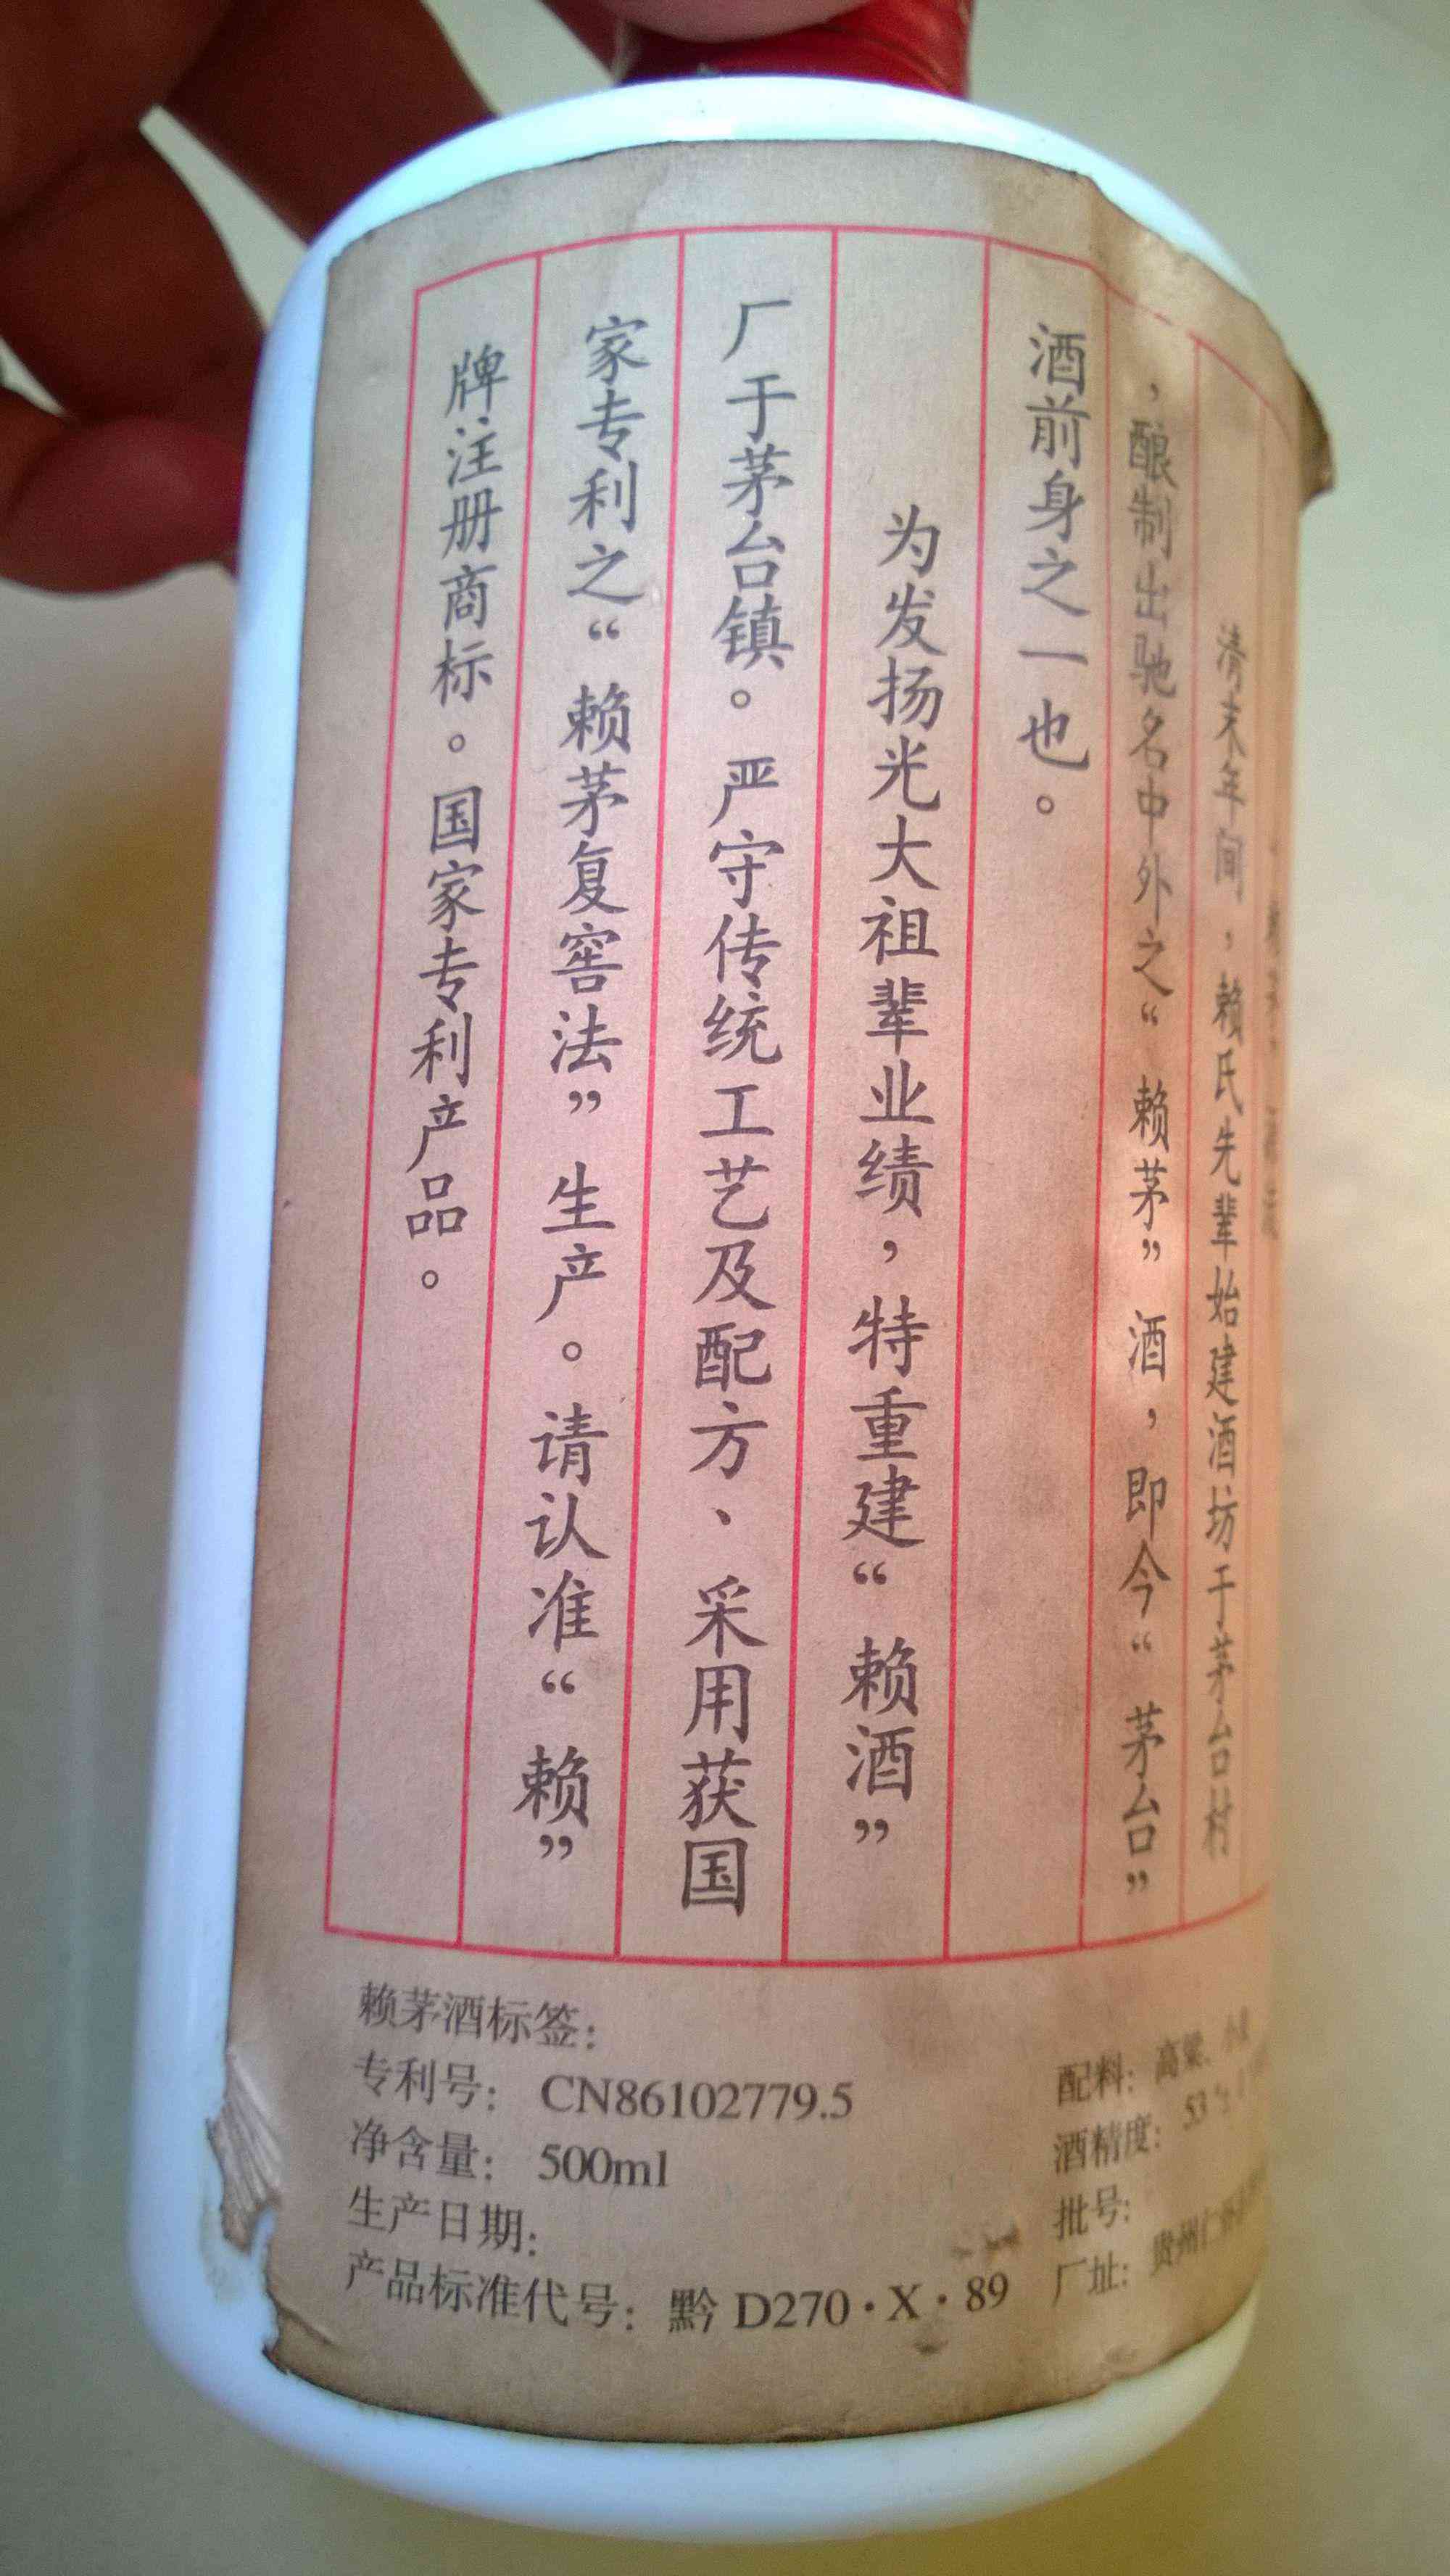 清末年间，赖氏先辈始建酒坊于茅台村
，酿制出驰名中外之“赖茅”酒，即今“茅台”
酒前身之一也。
为发扬光大祖辈业绩，特重建“赖酒”
厂于茅台镇。严守传统工艺及配方、采用获国
家专利之“赖茅复窖法”生产。请认准“赖”
牌注册商标。国家专利产品。
赖茅酒标签：
专利号： CN86102779.5
净含量： 500ml
生产日期：
产品标准代号：黔 D270·X·89
配料：高粱、小
酒精度：53
批号：
厂址：贵州仁